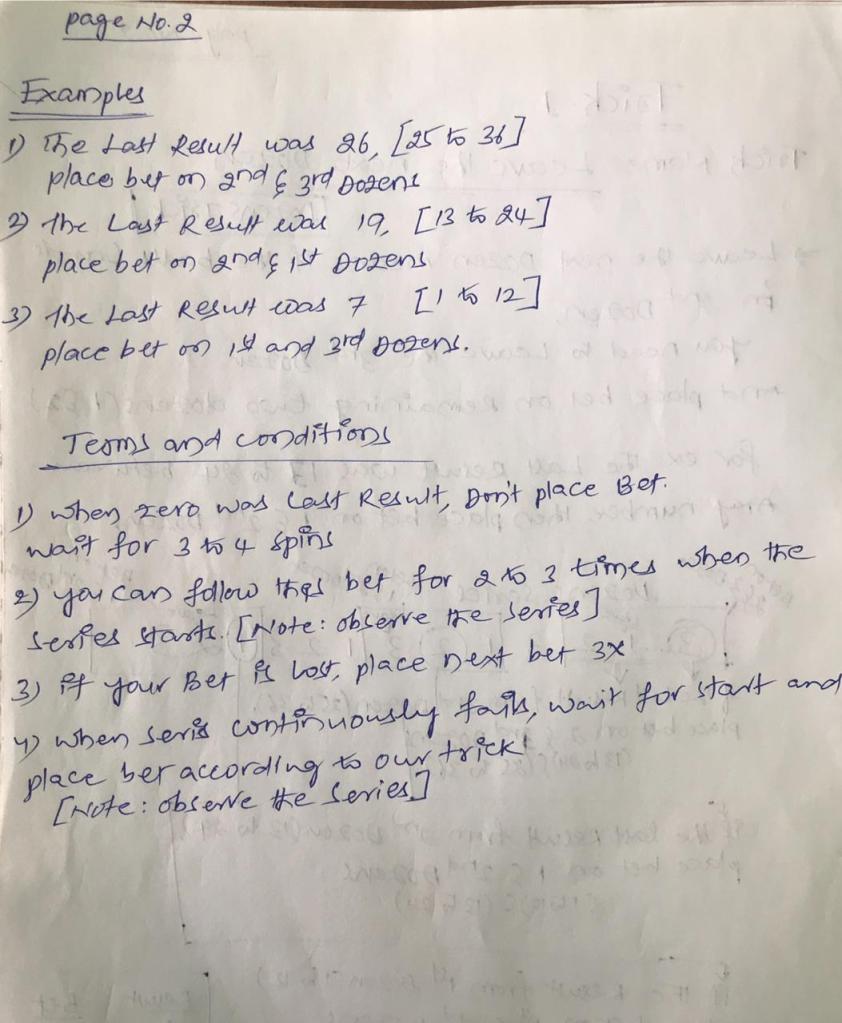 page No. 2
Examples
1) The Last Result was 26, [25 to 36]
place bet on 2nd & 3rd Dozens
2) The Last Result was 19, [13 to 24]
place bet on 2nd & 1st Dozens
3) The Last Result was 7 [1 to 12]
place bet on 1st and 3rd Dozens.
Terms and conditions
1) when zero was Last Result, Don't place Bet.
wait for 3 to 4 spins
2) you can follow this bet for 2 to 3 times when the
series starts. [Note: observe the series]
3) if your Bet is lost, place next bet 3x
4) when seris continuously fails, wait for start and
place bet according to our trick!
[Note: observe the series]